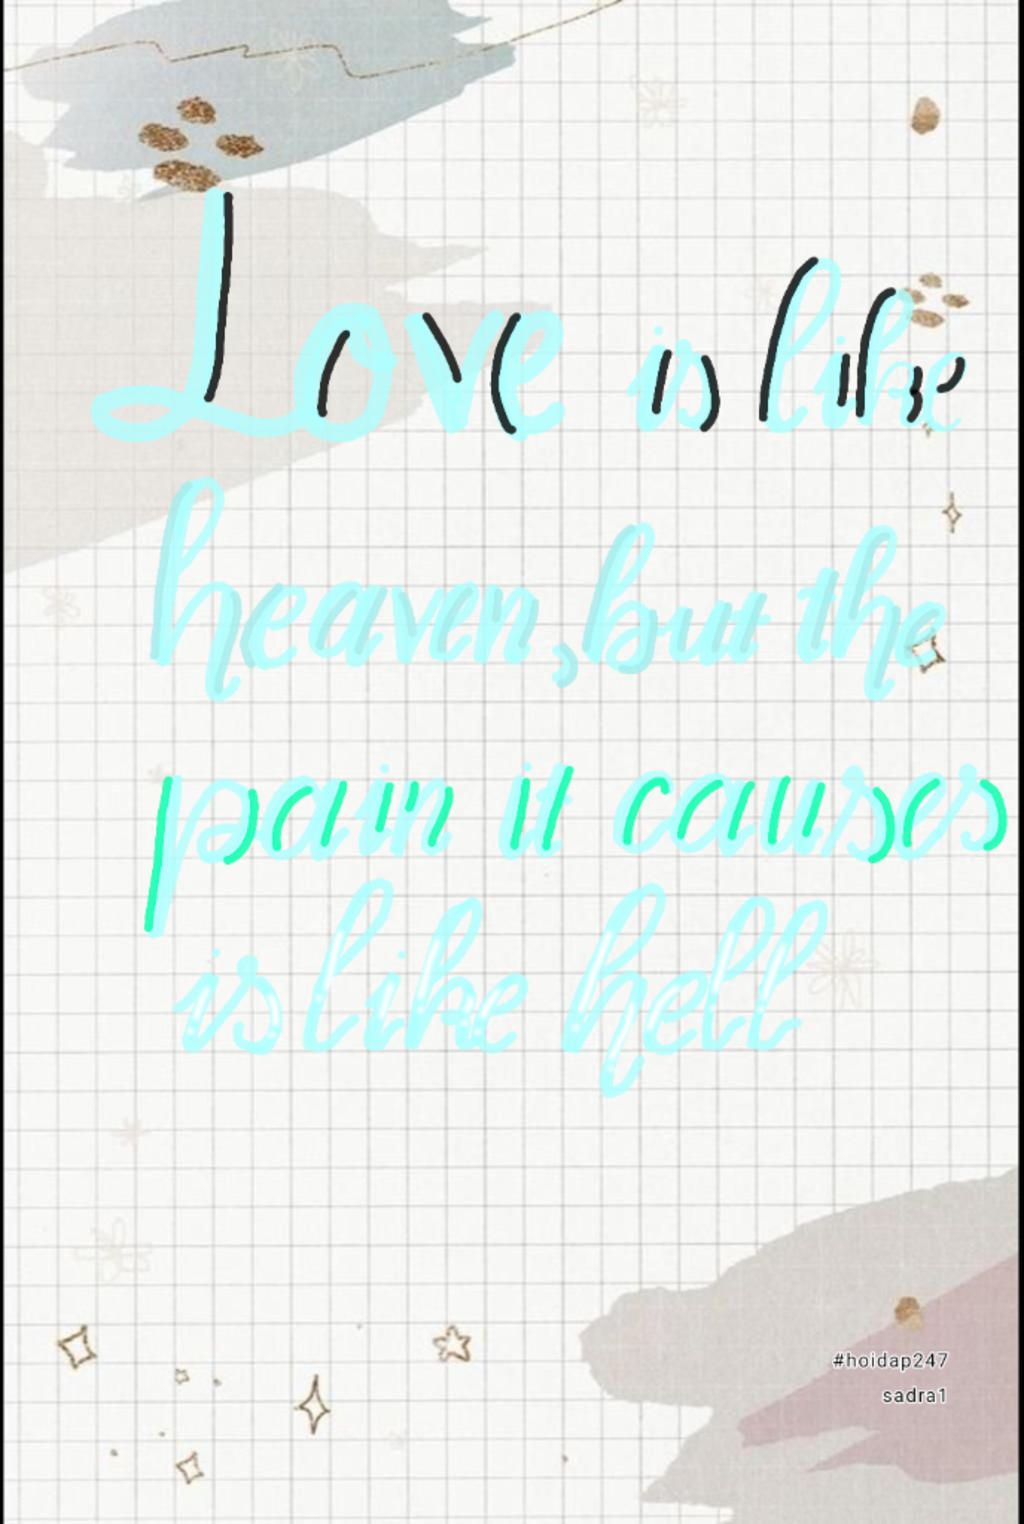 Love is like
heaven, but the
pain it causes
is like hell
#hoidap247
sadra1